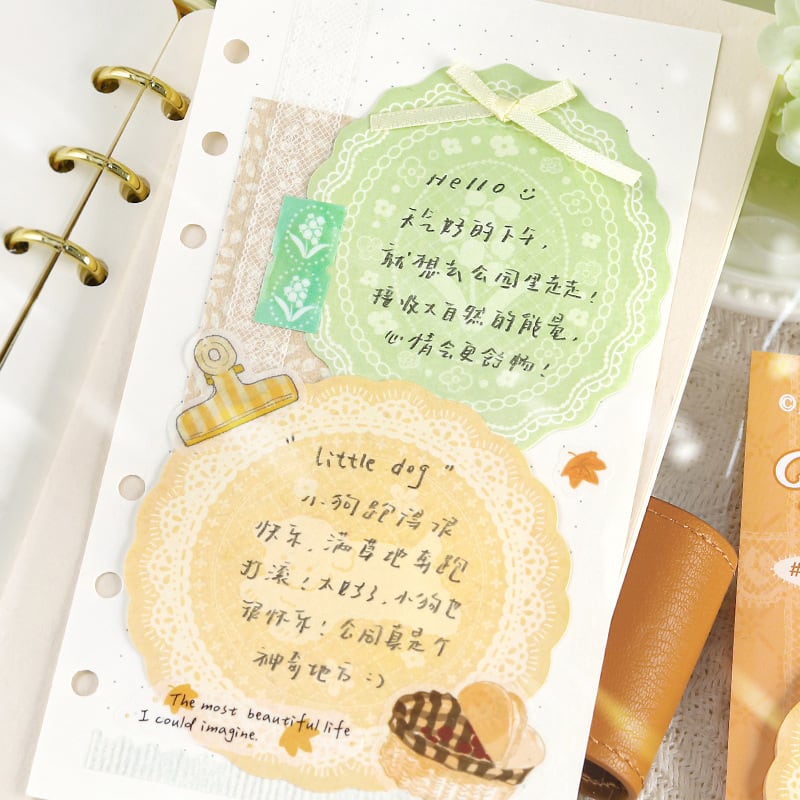 Hello
天气好的下午，
就想去公园里走走！
接收大自然的能量，
心情会更舒畅！
"little dog"
小狗跑得很
快乐，满草地奔跑
打滚！太好了，小狗也
很快乐！公园真是个
神奇地方 :)
The most beautiful life
I could imagine.
©
#